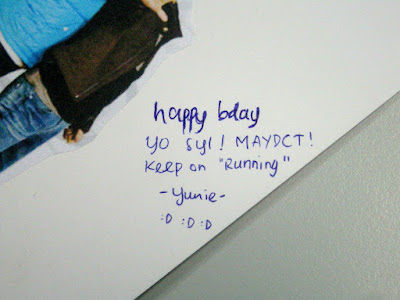 happy bday
YO SYL! MAYDCT!
Keep on "Running"
-Yunie-
:D :D :D